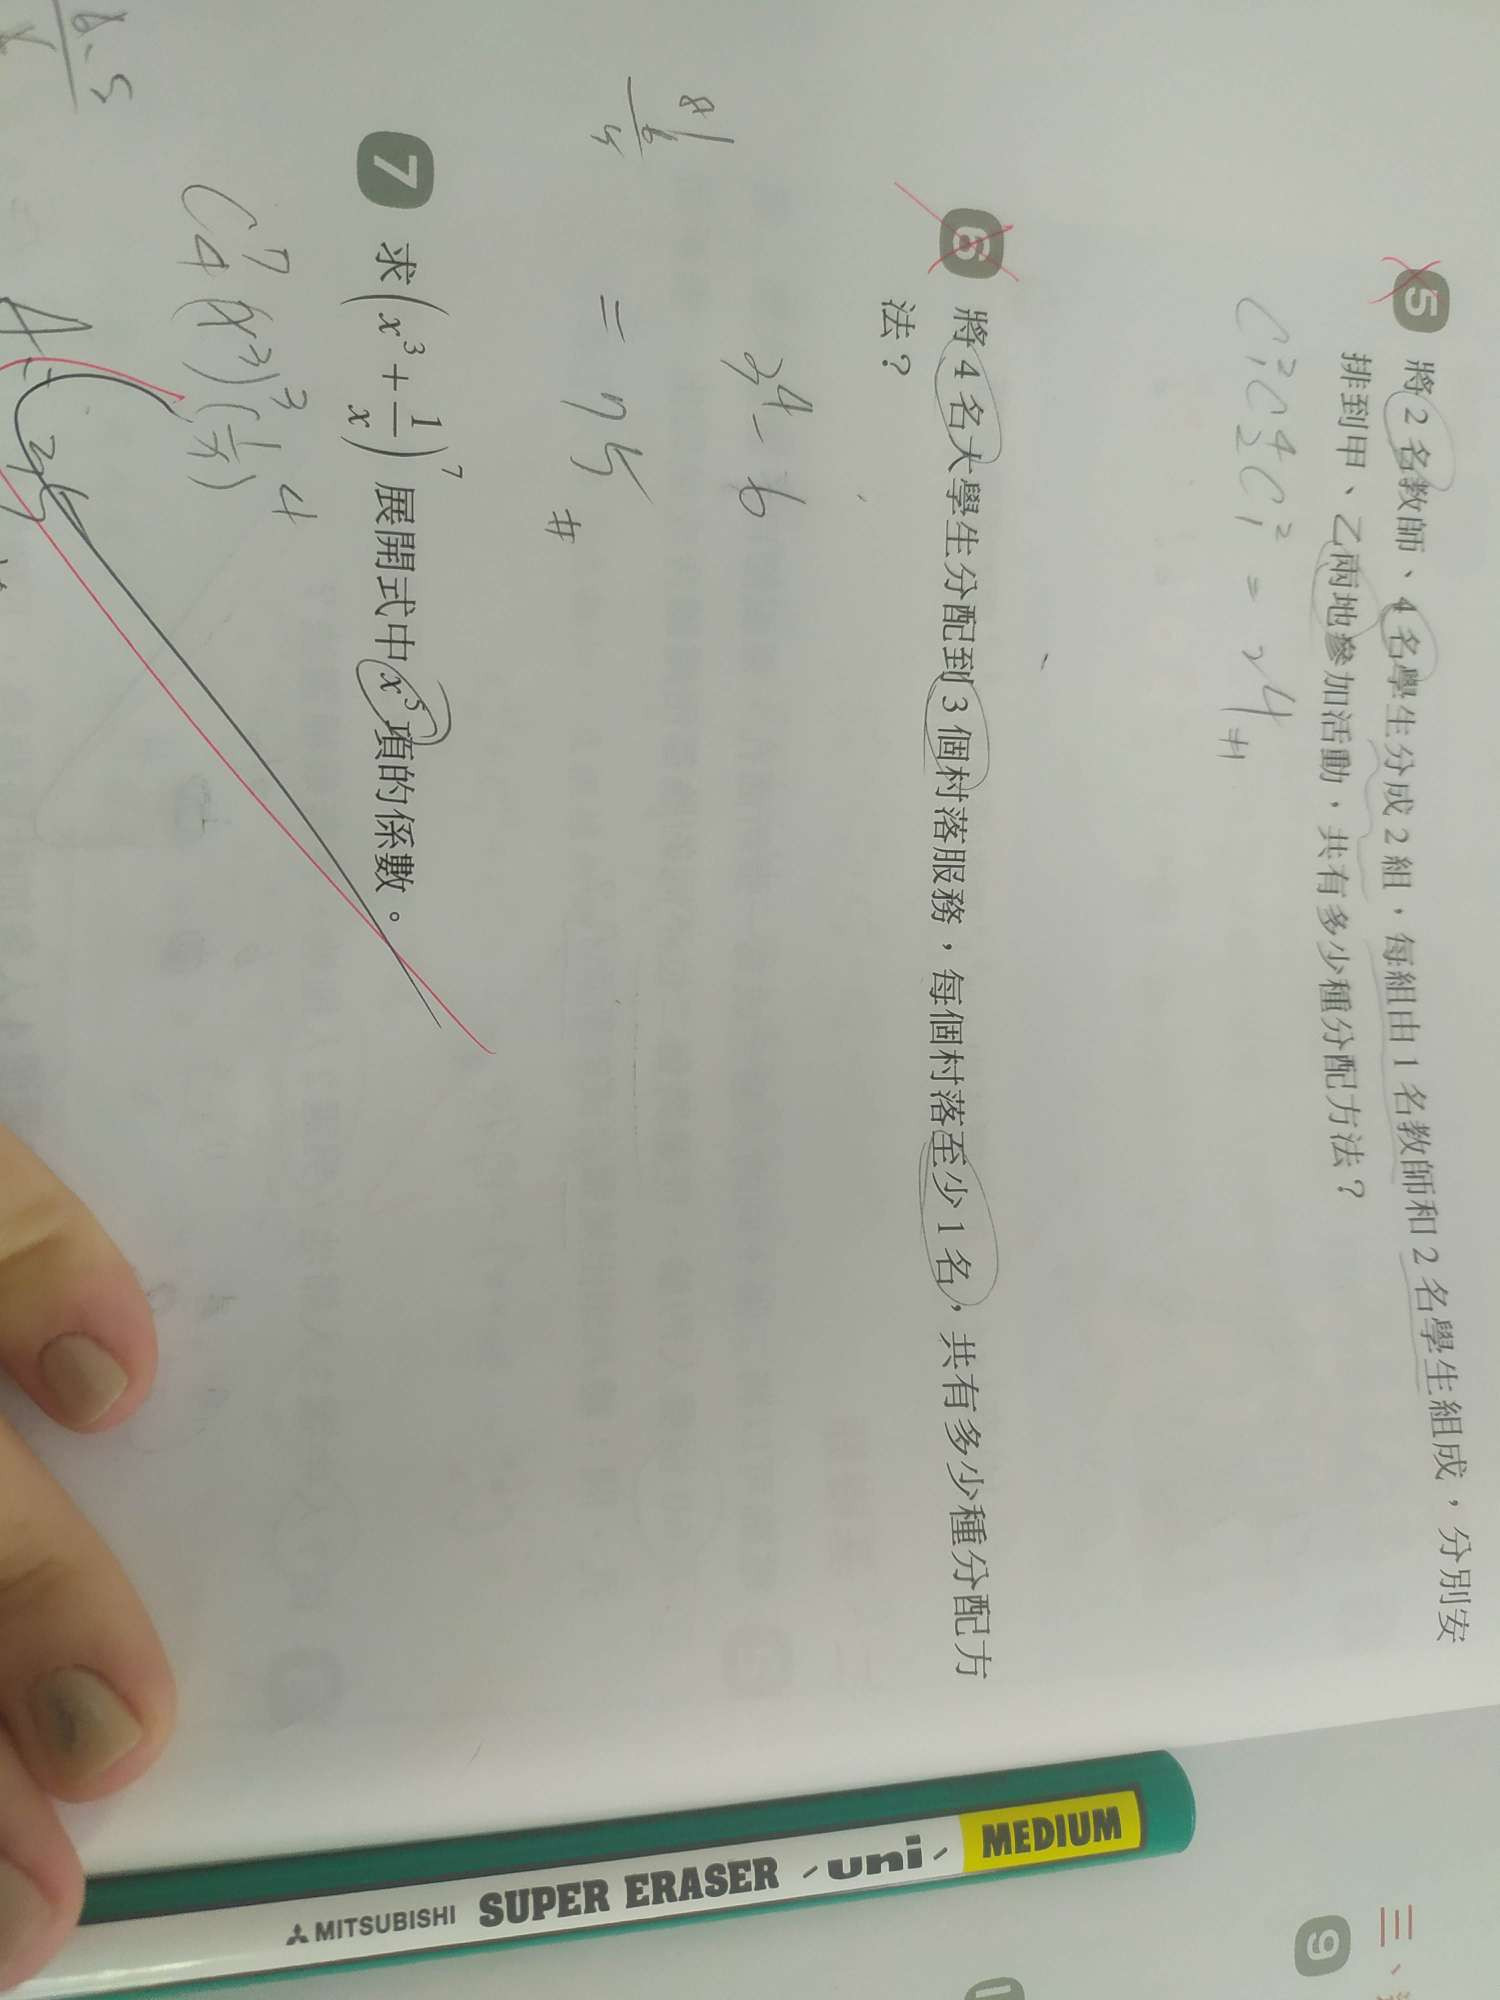 5 將2名教師、4名學生分成2組，每組由1名教師和2名學生組成，分別安
排到甲、乙兩地參加活動，共有多少種分配方法？
C²₁C⁴₂C²₁ = 24 #
6 將4名大學生分配到3個村落服務，每個村落至少1名，共有多少種分配方
法？
3⁴-6
81
6
= 75 #
7 求(x³+1/x)⁷展開式中x⁵項的係數。
C⁷₄(x³)³(1/x)⁴
A: 35
MITSUBISHI SUPER ERASER uni MEDIUM
三、
9